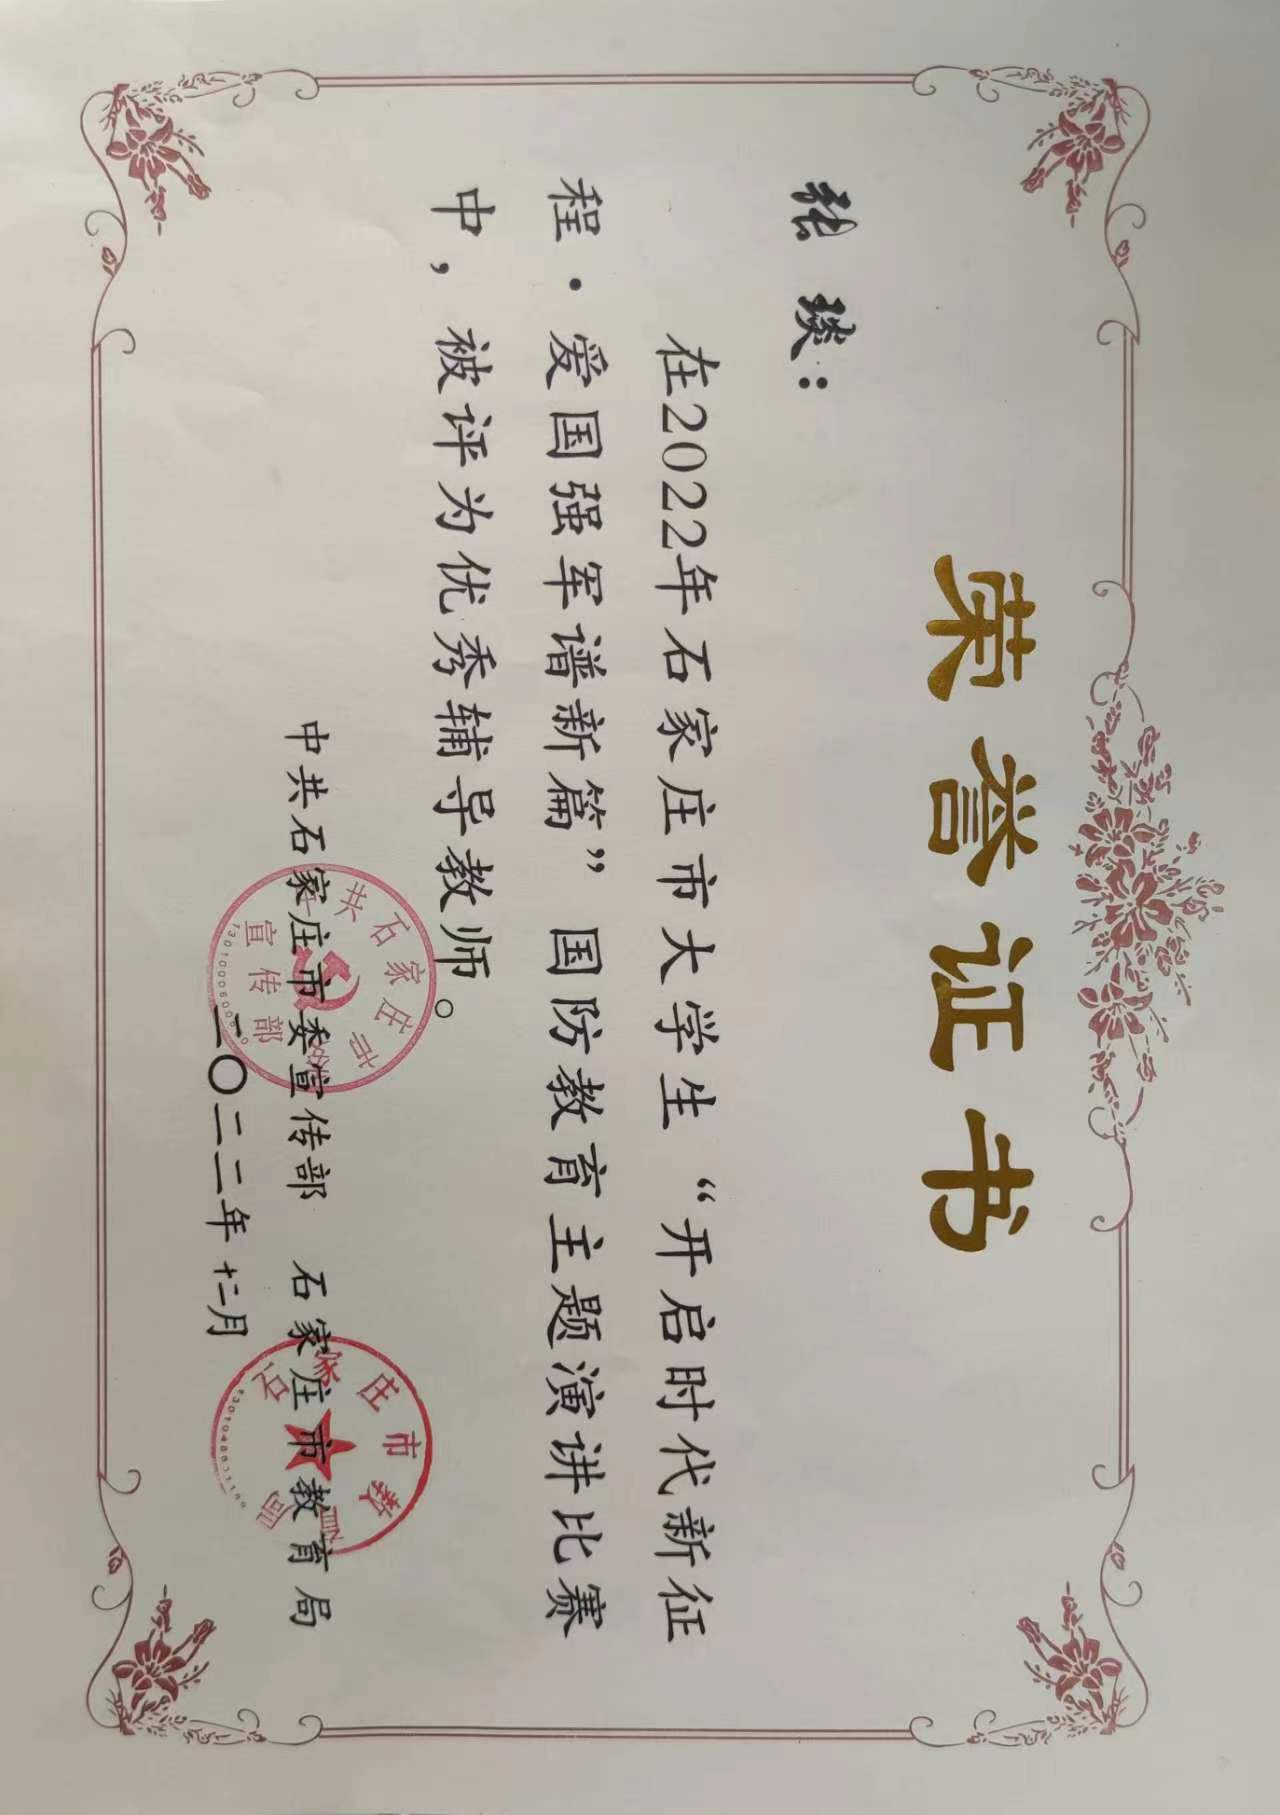 荣誉证书
张 琰：
在2022年石家庄市大学生“开启时代新征
程·爱国强军谱新篇”国防教育主题演讲比赛
中，被评为优秀辅导教师。
中共石家庄市委宣传部 石家庄市教育局
二〇二二年十二月
共石家庄市
宣传部
石家庄市教育局